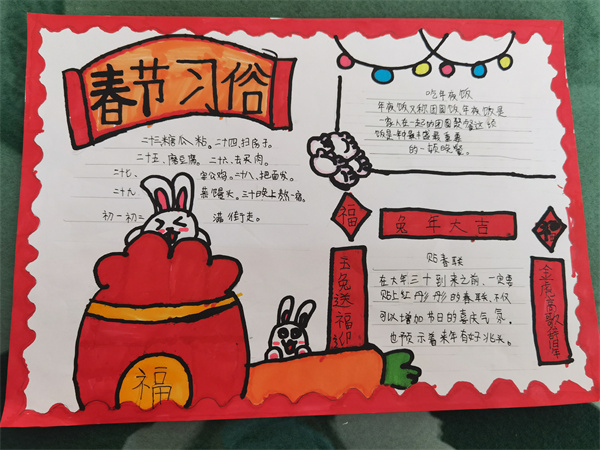 春节习俗
二十三糖瓜粘。二十四扫房子。
二十五，磨豆腐。二十六，去买肉。
二十七，宰公鸡。二十八，把面发。
二十九 蒸馒头。三十晚上熬一宿。
初一初二 满街走。
福
吃年夜饭
年夜饭又称团圆饭，年夜饭是
一家人在一起的团圆聚餐这顿
饭是年最重要
的一顿晚餐。
福
兔年大吉
福
玉兔送福
金虎高歌辞旧年
贴春联
在大年三十到来之前、一定要
贴上红彤彤的春联、不仅
可以增加节日的喜庆气氛，
也预示着来年有好兆头。